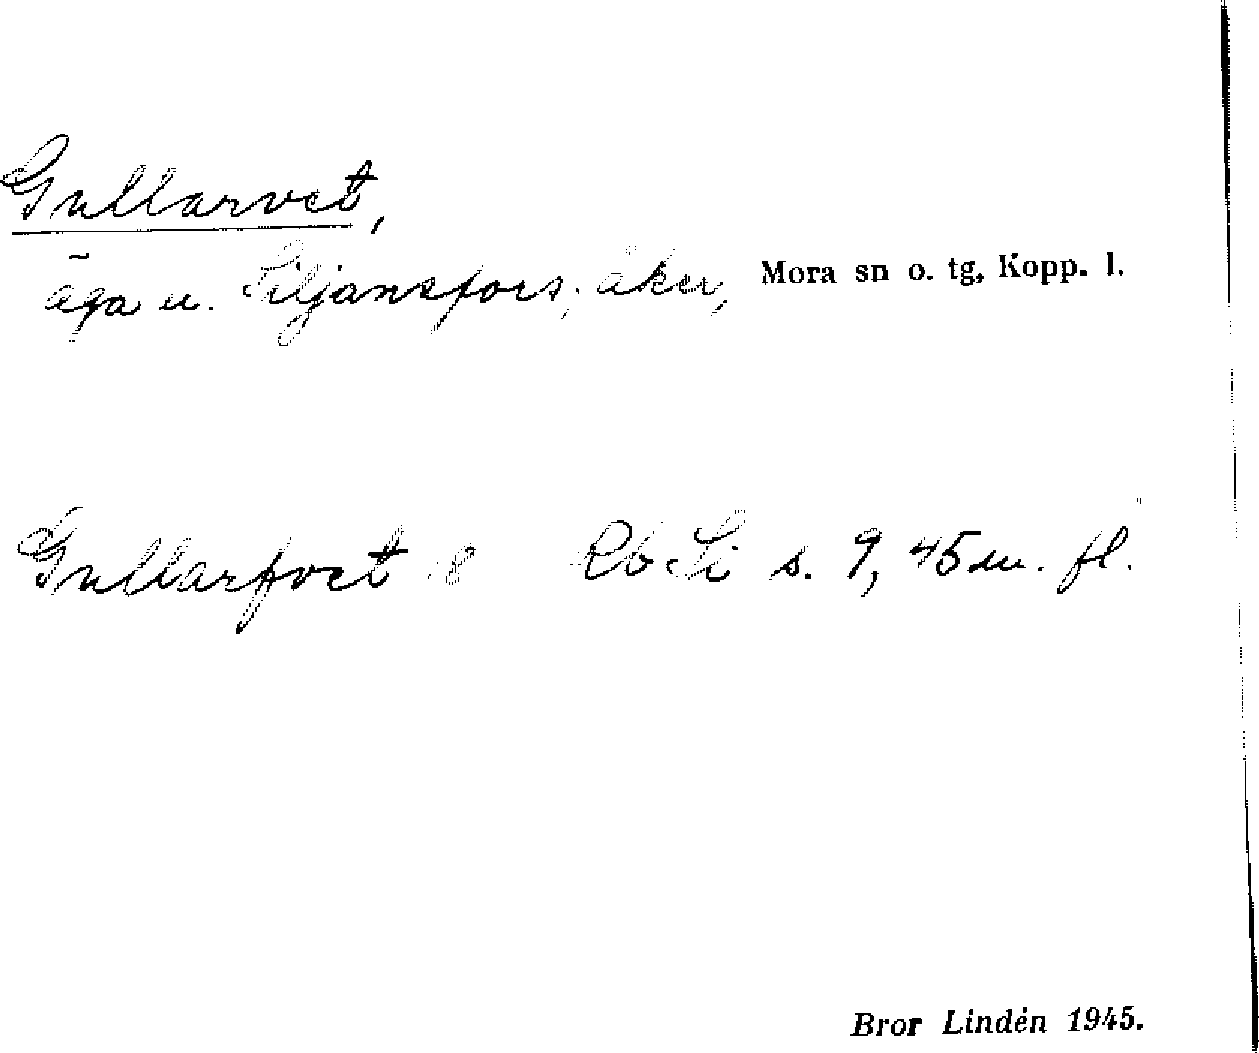 Gullarvet,
äga u. Siljansfors; åker, Mora sn o. tg, Kopp. l.
Gullarfvet Rb Si s. 9, 45 m. fl.
Bror Lindén 1945.